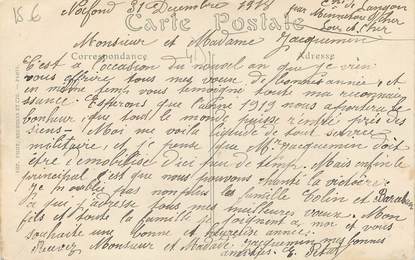 Noefond 31 Decembre 1918
Carte Postale
Monsieur et Madame Jacquemin
Correspondance
Adresse
C'est a l'occasion du nouvel en que je vien
vous offrire tous mes voeux de bonne année, et
en meme temp vous temoigné toute ma reconnais
ssance. Esperons que l'année 1919 nous apportera le
bonheur, que tout le monde puisse rentré près des
siens - Moi me voila liquidé de tout service
militaire, et je pense que Mr Jacquemin doit
etre demobilisé d'ici peu de temp. Mais enfin le
principal c'est que nous pouvons chanté la victoire.
Je n'oublie pas non plus la famille Volin et
a qui j'adresse tous mes meilleures voeux. Mon
fils et toute la famille se joignent a moi et vous
souhaite une bonne et heureuse année.
Recevez Monsieur et Madame Jacquemin mes bonnes
amitiés. E. Petat